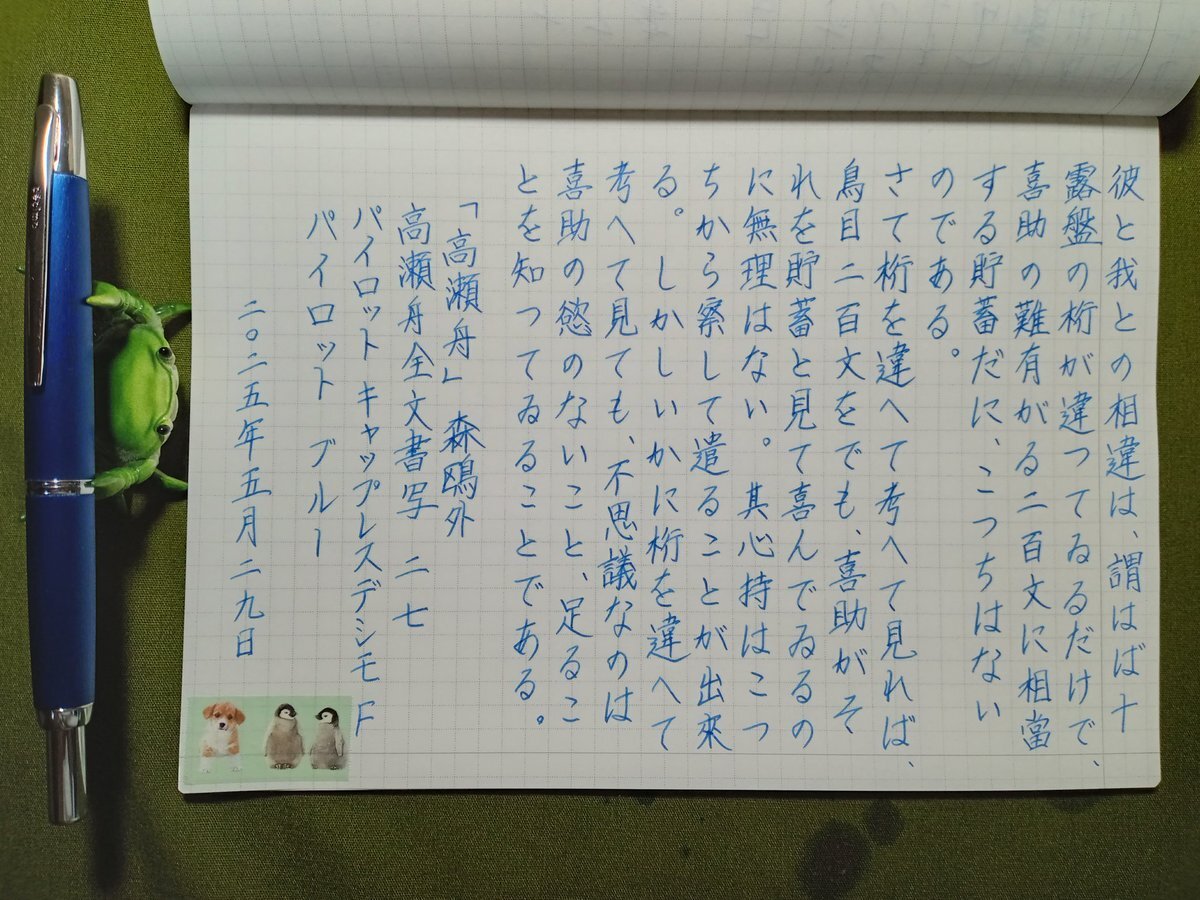 彼と我との相違は、謂はば十
露盤の桁が違つてゐるだけで、
喜助の難有がる二百文に相當
する貯蓄だに、こつちはない
のである。
さて桁を違へて考へて見れば、
鳥目二百文をでも、喜助がそ
れを貯蓄と見て喜んでゐるの
に無理はない。其心持はこつ
ちから察して遣ることが出來
る。しかしいかに桁を違へて
考へて見ても、不思議なのは
喜助の慾のないこと、足るこ
とを知つてゐることである。
「高瀬舟」 森鴎外
高瀬舟全文書写 二七
パイロットキャップレスデシモF
パイロット ブルー
二〇二五年五月二九日